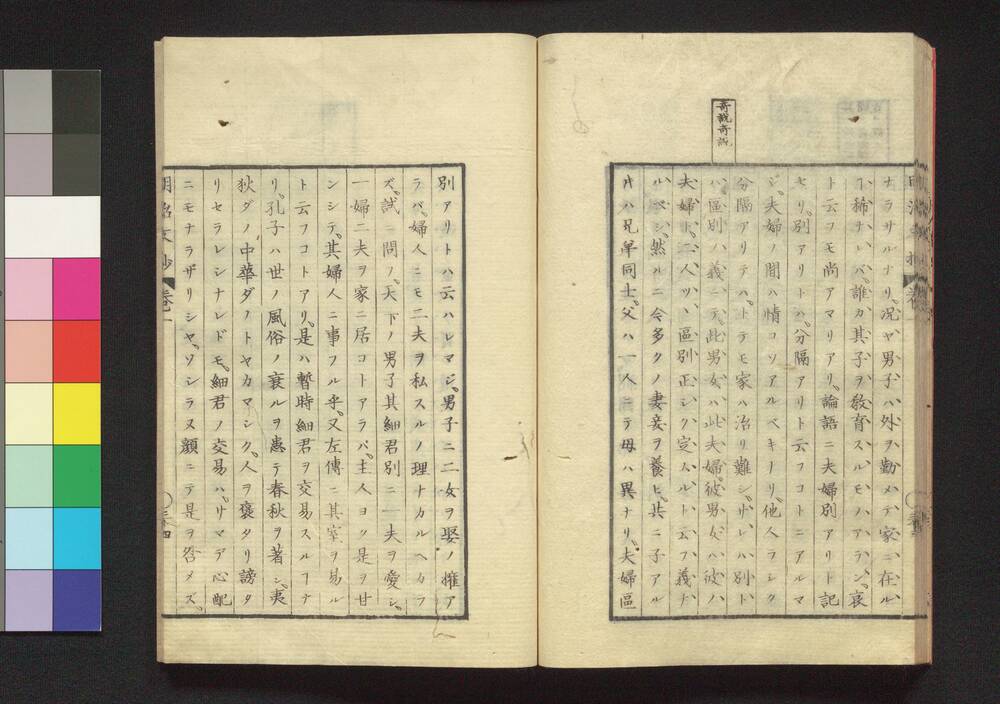 奇戟奇説
ナラサルナリ、况ヤ男子ハ外ヲ勤メテ家ニ在ル
ヿ稀ナレバ、誰カ其子ヲ教育スルモノアラン、哀
ト云フモ尚アマリアリ、論語ニ夫婦別アリト記
セリ、別アリトハ、分隔アリト云フコトニアルマ
ジ、夫婦ノ間ハ情コソアルベキナリ、他人ラシク
分隔アリテハ、トテモ家ハ治リ難シ、サレハ別ト
ハ、區別ノ義ニテ、此男女ハ此夫婦、彼男女ハ彼ハ
夫婦ト、二人ツヽ區別正シク定ムルト云フ義ナ
ルベシ、然ルニ今多クノ妻妾ヲ養ヒ、其ニ子アル
片ハ兄弟同士、父ハ一人ニテ母ハ異ナリ、夫婦區
別アリトハ云ハレマジ、男子ニ二女ヲ娶ノ権ア
ラバ、婦人ニモ二夫ヲ私スルノ理ナカルヘカラ
ズ、試ニ問ノ、天下ノ男子其細君別ニ一夫ヲ愛シ、
一婦二夫ヲ家ニ居コトアラバ、主人ヨク是ヲ甘
ンシテ、其婦人ニ事フル乎、又左傳ニ其室ヲ易ル
ト云フコトアリ、是ハ暫時細君ヲ交易スルヿナ
リ、孔子ハ世ノ風俗ノ衰ルヲ患テ春秋ヲ著シ、夷
狄ダノ中華ダノトヤカマシク、人ヲ褒タリ謗タ
リセラレシナレドモ、細君ノ交易ハ、サマデ心配
ニモナラザリシヤ、ソシラヌ顔ニテ是ヲ咎メズ、
明治文抄 巻一 ○三十四